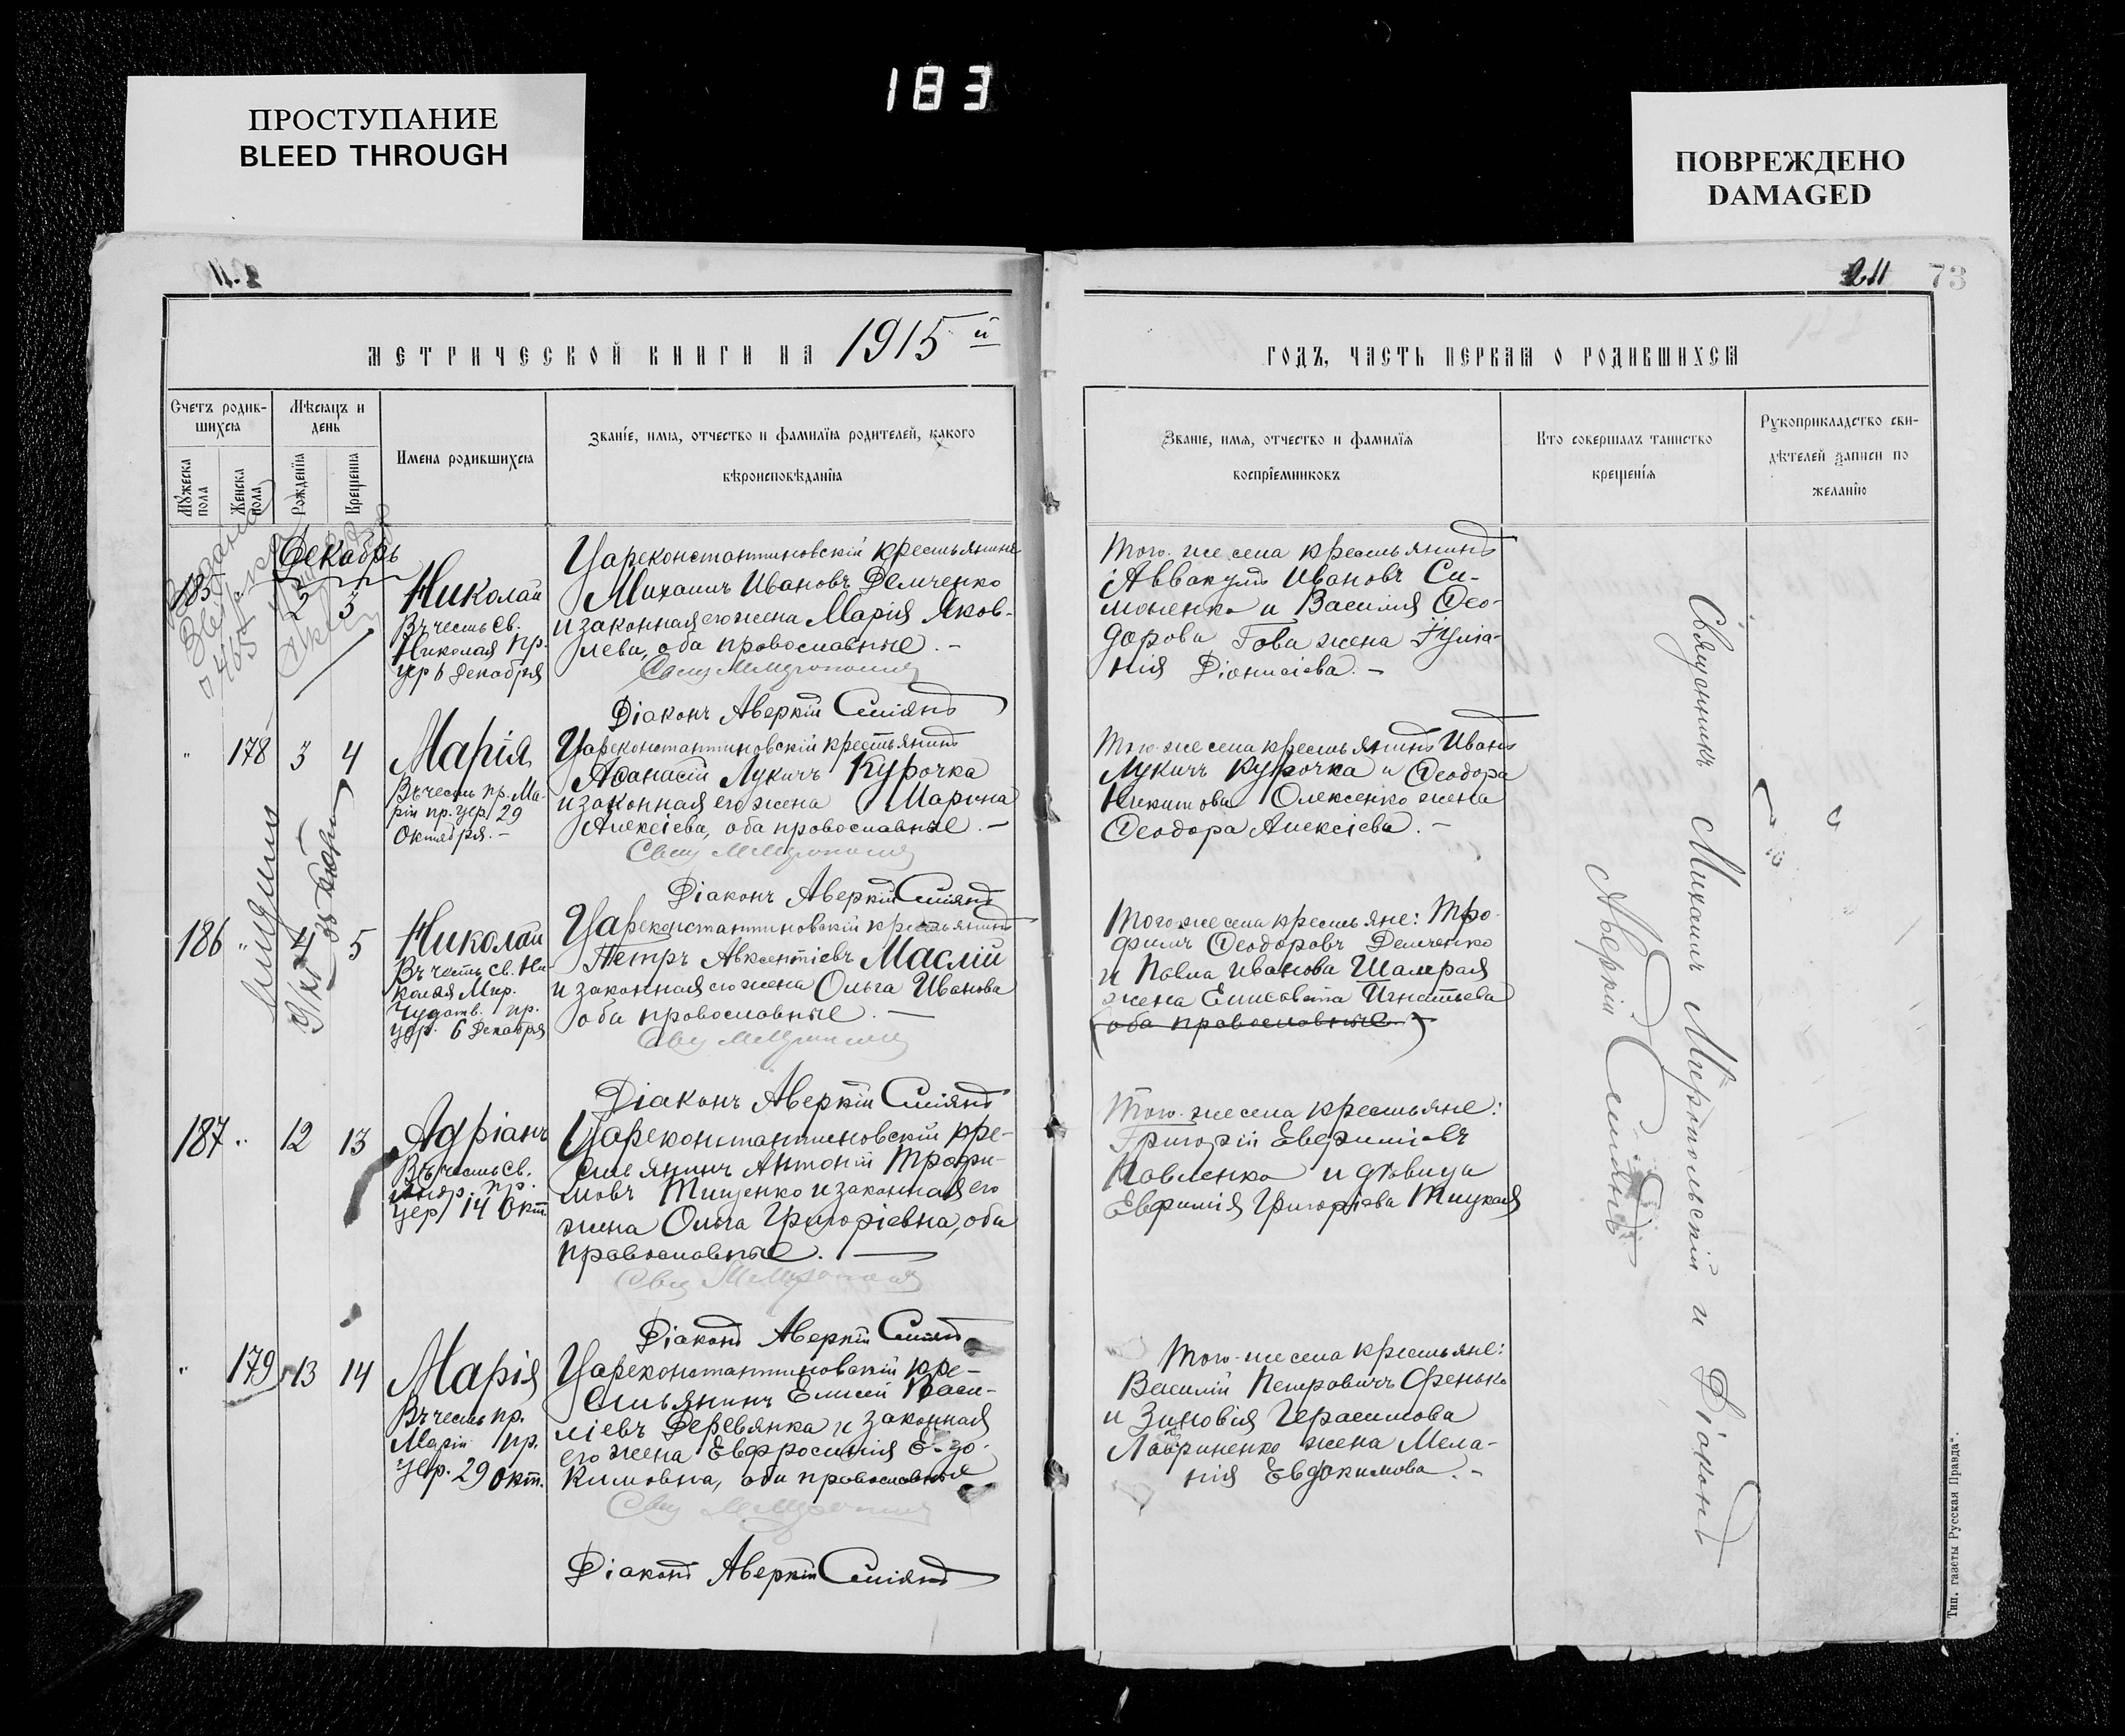 183
ПРОСТУПАНИЕ
BLEED THROUGH
ПОВРЕЖДЕНО
DAMAGED
73
МЕТРИЧЕСКОЙ КНИГИ НА 1915 й
ГОДЪ, ЧАСТЬ ПЕРВАЯ О РОДИВШИХСЯ
Счетъ родив-
шихся
Мѣсяцъ и
день
Мужеска
пола
Женска
пола
Рожденїя
Крещенїя
Имена родившихся
Званїе, имя, отчество и фамилїя родителей, какого
вѣроисповѣданїя
Званїе, имя, отчество и фамилїя
воспрїемниковъ
Кто совершалъ таинство
крещенїя
Рукоприкладство сви-
дѣтелей записи по
желанїю
Декабрь
185
2 3
Николай
Въ честь Св.
Николая пр.
цер 6 Декабря
Цареконстантиновскій крестьянинъ
Михаилъ Ивановъ Демченко
и законная его жена Марія Яков-
лева, оба православные. –
Діаконъ Аверкій Сміянъ
Того-же села крестьянинъ
Аввакумъ Ивановъ Си-
моненко и Василія Ѳео-
дорова Гова жена Іуліа-
нія Діонисіева. –
" 178 3 4
Марія
Въ честь пр. Ма-
ріи пр. цер. 29
Октября. –
Цареконстантиновскій крестьянинъ
Аѳанасій Лукичъ Курочка
и законная его жена Марина
Алексіева, оба православные. –
Діаконъ Аверкій Сміянъ
Того-же села крестьянинъ Иванъ
Лукичъ Курочка и Ѳеодора
Никитова Олексенко жена
Ѳеодора Алексіева. –
186 " 4 5
Николай
Въ честь Св. Ни-
колая Мир.
Чудотв. пр.
цер. 6 Декабря
Цареконстантиновскій крестьянинъ
Петръ Авксентіевъ Маслій
и законная его жена Ольга Иванова
оба православные. –
Діаконъ Аверкій Сміянъ
Того же села крестьяне: Тро-
фимъ Ѳеодоровъ Демченко
и Павла Иванова Шамрая
жена Елисавета Игнатьева
(оба православные. –)
187 " 12 13
Адріанъ
Въ честь Св.
цер. 14 Окт.
Цареконстантиновскій кре-
стьянинъ Антоній Трофи-
мовъ Тищенко и законная его
жена Ольга Григоріевна, оба
православные. –
Діаконъ Аверкій Сміянъ
Того-же села крестьяне:
Григорій Евфиміевъ
Павленко и дѣвица
Евфимія Григоріева Тицкая
" 179 13 14
Марія
Въ честь пр.
Маріи пр.
цер. 29 Окт.
Цареконстантиновскій кре-
стьянинъ Елисей Васи-
ліевъ Деревянка и законная
его жена Евфросинія Евдо-
кимовна, оба православные
Діаконъ Аверкій Сміянъ
Того-же села крестьяне:
Василій Петровичъ Фенько
и Зиновія Герасимова
Лавриненко жена Мела-
нія Евдокимова. –
Священникъ Михаилъ Миропольскій и Діаконъ
Аверкій Сміянъ
Тип. газеты Русская Правда".